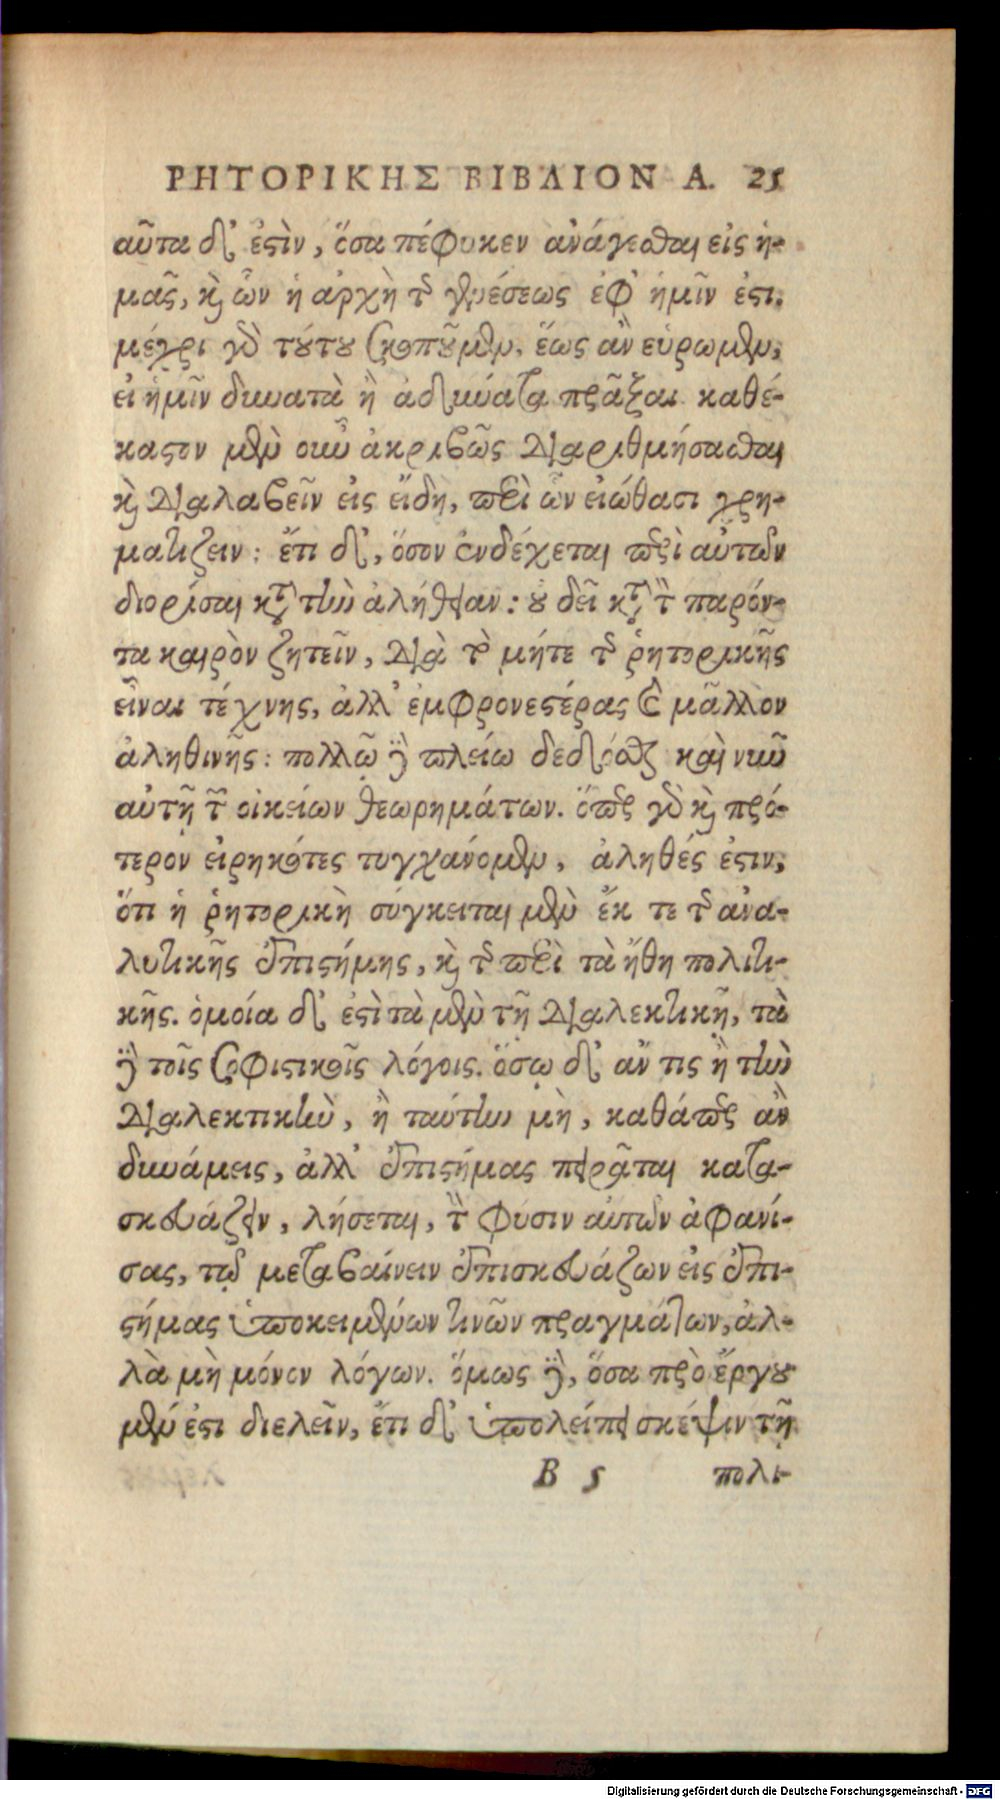 ΡΗΤΟΡΙΚΗΣ ΒΙΒΛΙΟΝ Α. 25
αὗτα δ' ἐστὶν, ὅσα πέφυκεν ἀνάγεσθαι εἰς ἡ-
μᾶς, καὶ ὧν ἡ ἀρχὴ τῆς γενέσεως ἐφ' ἡμῖν ἐστι.
μέχρι γὰρ τούτου σκοποῦμεν, ἕως ἂν εὑρωμεν,
εἰ ἡμῖν δυνατὰ ἢ ἀδυνάτα πρᾶξαι καθέ-
καστον μὲν οὖν ἀκριβῶς διαριθμήσασθαι
καὶ διαλαβεῖν εἰς εἴδη, περὶ ὧν εἰώθασι χρη-
ματίζειν: ἔτι δ', ὅσον ἐνδέχεται περὶ αὐτῶν
διορίσαι κατὰ τὴν ἀλήθειαν: οὐ δεῖ κατὰ τὸν παρόν-
τα καιρὸν ζητεῖν, διὰ τὸ μήτε τῆς ῥητορικῆς
εἶναι τέχνης, ἀλλ' ἐμφρονεστέρας καὶ μᾶλλον
ἀληθινῆς: πολλῷ δὲ πλείω δεδόσθαι καὶ νῦν
αὐτῇ τῶν οἰκείων θεωρημάτων. ὅπερ γὰρ καὶ πρό-
τερον εἰρηκότες τυγχάνομεν, ἀληθές ἐστιν,
ὅτι ἡ ῥητορικὴ σύγκειται μὲν ἔκ τε τῆς ἀνα-
λυτικῆς ἐπιστήμης, καὶ τῆς περὶ τὰ ἤθη πολιτι-
κῆς. ὁμοία δ' ἐστὶ τὰ μὲν τῇ διαλεκτικῇ, τὰ
δὲ τοῖς σοφιστικοῖς λόγοις. ὅσῳ δ' ἄν τις ἢ τὴν
διαλεκτικὴν, ἢ ταύτην μὴ, καθάπερ ἂν
δυνάμεις, ἀλλ' ἐπιστήμας πειρᾶται κατα-
σκευάζειν, λήσεται, τὴν φύσιν αὐτῶν ἀφανί-
σας, τῷ μεταβαίνειν ἐπισκευάζων εἰς ἐπι-
στήμας ὑποκειμένων τινῶν πραγμάτων, ἀλ-
λὰ μὴ μόνον λόγων. ὅμως δὲ, ὅσα πρὸ ἔργου
μέν ἐστι διελεῖν, ἔτι δ' ὑπολείπει σκέψιν τῇ
B 5 πολι-
Digitalisierung gefördert durch die Deutsche Forschungsgemeinschaft - DFG